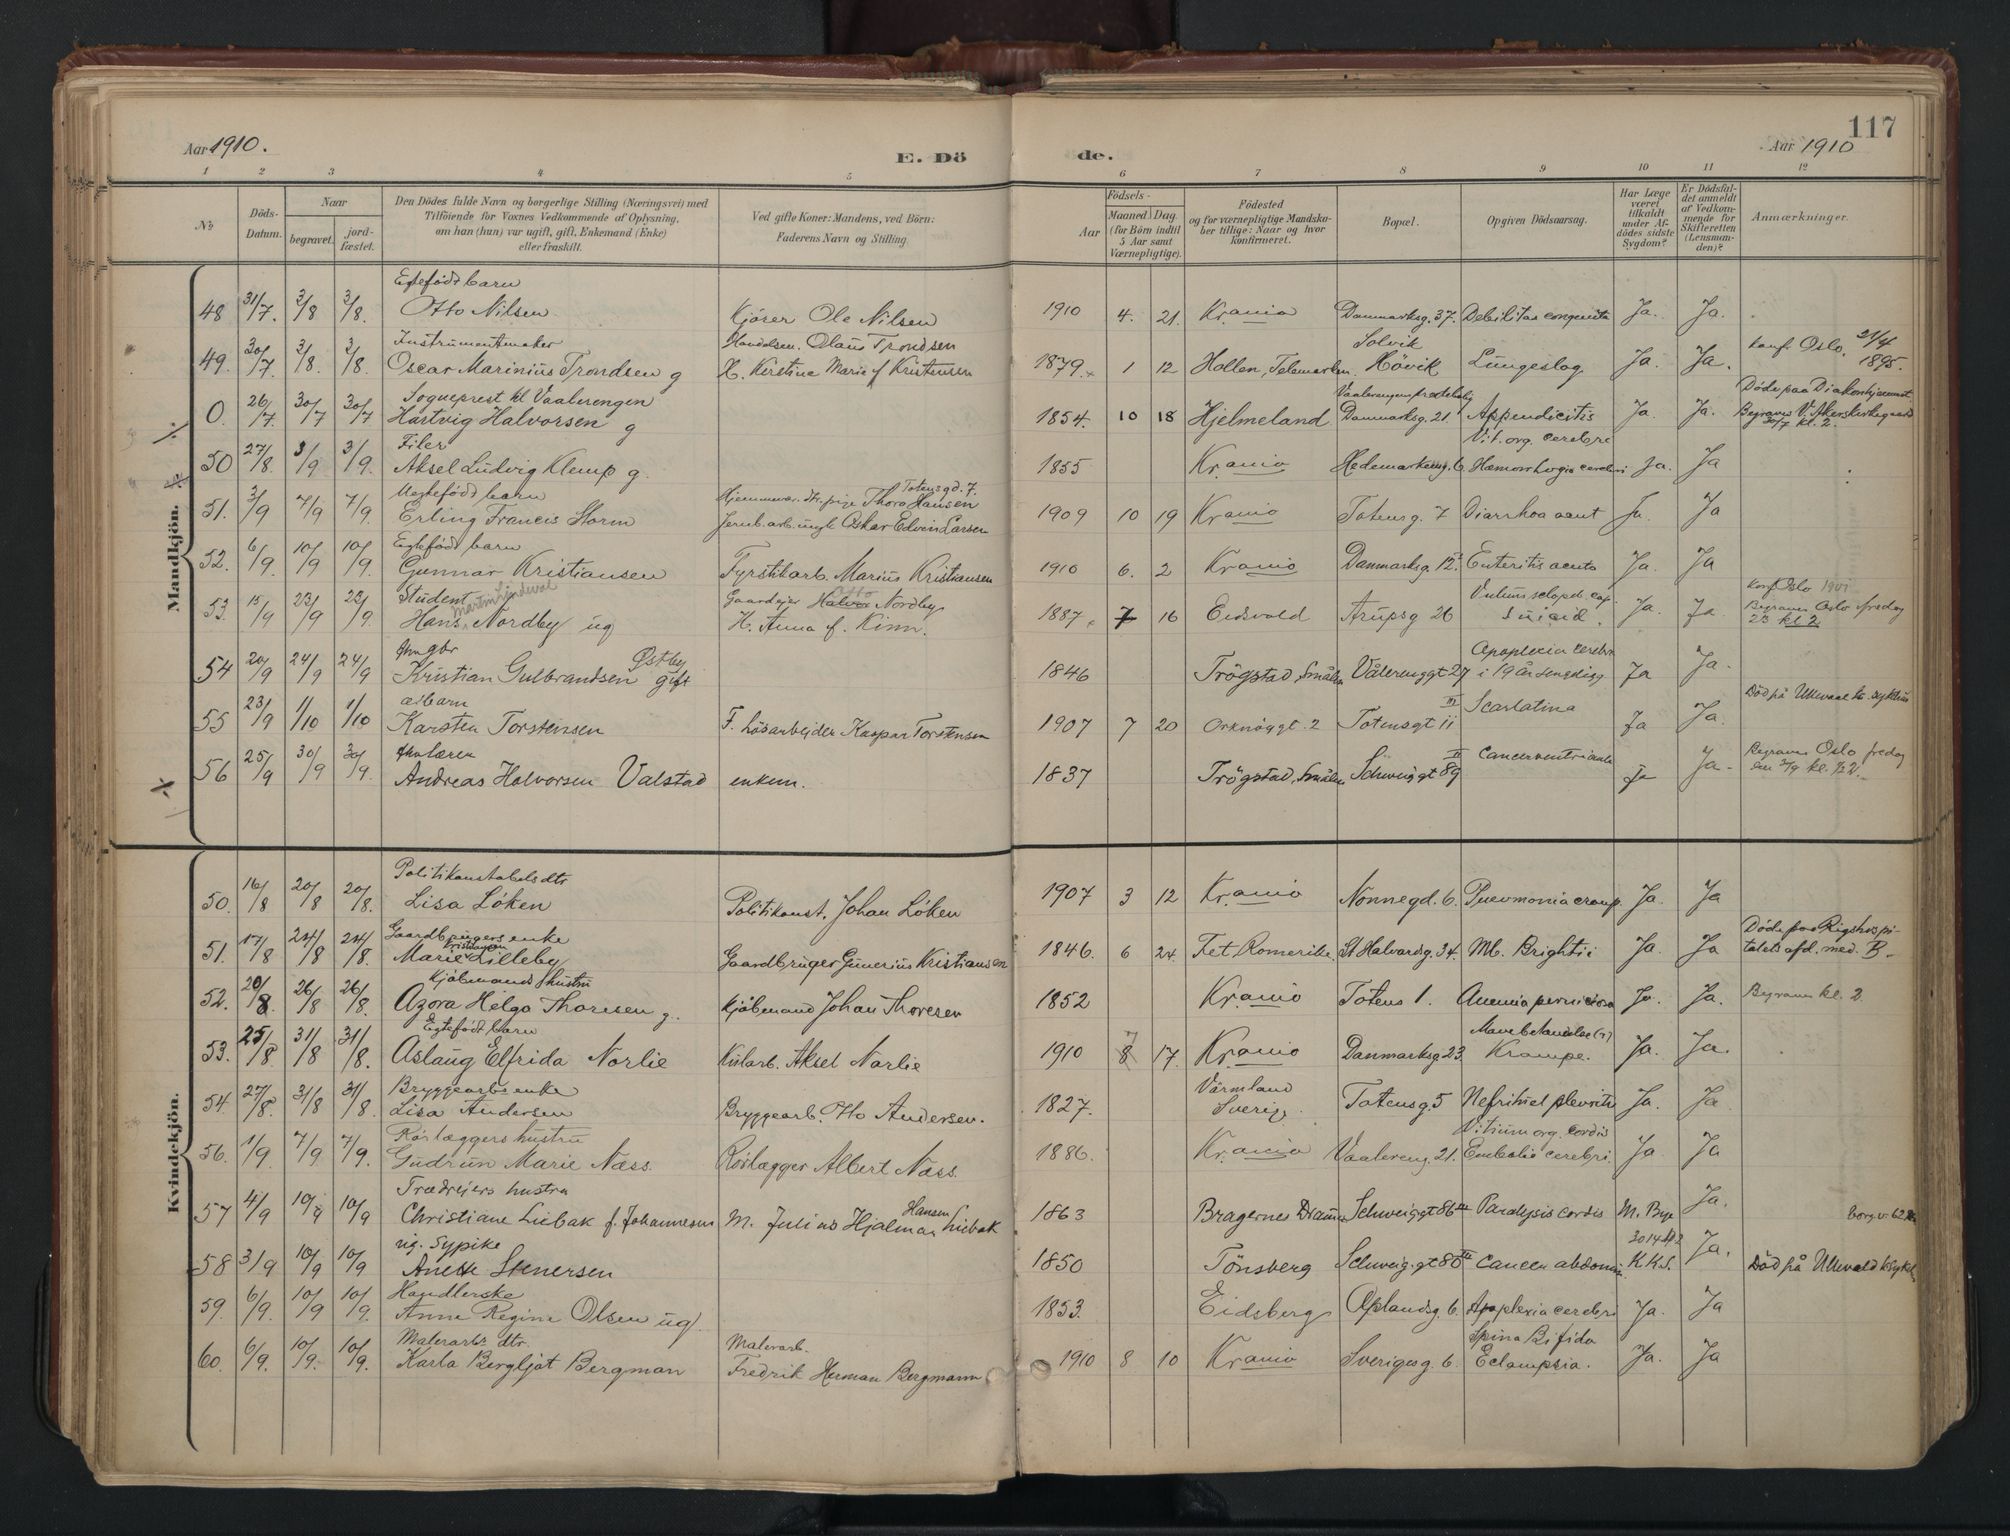 117
Aar 1910.
E. Döde.
Aar 1910
1 2 3 4 5 6 7 8 9 10 11 12
№
Döds-Datum.
Naar
begravet.
jord-fæstet.
Den Dödes fulde Navn og borgerlige Stilling (Næringsvei) med
Tilföiende for Voxnes Vedkommende af Oplysning,
om han (hun) var ugift, gift, Enkemand (Enke)
eller fraskilt.
Ved gifte Koner: Mandens, ved Börn:
Faderens Navn og Stilling.
Födsels-
Aar
Maaned
Dag
(for Börn indtil
5 Aar samt
Værnepligtige).
Födested
og for værnepligtige Mandskaber tillige: Naar og hvor
konfirmeret.
Bopæl.
Opgiven Dödsaarsag.
Har Læge
været
tilkaldt
under Afdödes sidste
Sygdom?
Er Dödsfaldet anmeldt
af Vedkommende for
Skifteretten
(Lensmanden)?
Anmærkninger.
Mandkjön.
Egtefödt barn
48 31/7. 3/8 3/8. Otto Nilsen Kjörer Ole Nilsen 1910 4. 21. Kr.ania Danmarksg. 37. Debilitas congenita Ja. Ja.
Instrumentmaker
49. 30/7. 3/8. 3/8. Oscar Marinius Trondsen g Olaus Trondsen
H. Kirstine Marie f Kristensen 1879. 1 12 Hollen, Telemarken. Solvik Hövik Lungeslag Ja. Ja. konf. Oslo. 21/4 1895.
Sogneprest til Vaalerengen
0. 26/7. 30/7 30/7 Hartvig Halvorsen g 1854. 10 18 Hjelmeland Danmarksg. 21. Appendicitis Ja. Ja. Döde paa Diakonhjemmet.
Begraves V. Akerskirkegaard
30/7 kl. 2.
Filer
50 27/8. 3/9 3/9. Aksel Ludvig Klemp g. 1855 Kr.ania Hedemarkensg. 6 Vit. org. cerebri
Hæmorrhagia cerebri Ja. Ja
Uegtefödt barn
51. 3/9 7/9 7/9. Erling Francis Storm pige Thora Hansen Totensgd. 7.
Jernb. arb. ungk. Oskar Edvin Larsen 1909 10 19 Kr.ania Totensg. 7 Diarrhoa acut Ja. Ja
Egtefödt barn
52. 6/9 10/9 10/9. Gunnar Kristiansen Fyrstikarb. Marius Kristiansen 1910 6. 2 Kr.ania Danmarksg 12. Enteritis acuta Ja. Ja
Student
53. 15/9 23/9 23/9. Hans Martin Lindeval Nordby ug Gaardejer Halvor Otto Nordby
H. Anna f. Kinn. 1887. 7 16 Eidsvold Arupsg 26 Suicid. Ja. Ja. konf Oslo 1901
Begraves Oslo fredag
23 kl 2
54 20/9 24/9 24/9. Kristian Gulbrandsen Østby gift 1846 Trögstad, Smålen Vålerenggt 27 Apoplexia cerebri
i 19 år sengeligg Ja Ja.
æ barn
55 23/9 1/10 1/10 Karsten Torstensen F. Lösarbejder Kaspar Torstensen 1907 7 20 Orknöygt. 2 Totensgt 11 III Scarlatina Ja Ja. Död på Ullevaal k. sykehus
56 25/9 30/9 30/9. Andreas Halvorsen Valstad enkem. 1837 Trögstad, Smålen Schweigsgt 89 II Cancer ventriculi Ja Ja. Begraves Oslo fredag
den 30/9 kl. 1/2 2.
Kvindekjön.
Politikonstabels dtr
50. 16/8 20/8 20/8. Lisa Löken Politikonst. Johan Löken 1907 3 12 Kr.ania Nonnegd. 6. Pneumonia croup. Ja. Ja
Gaardbrugers enke
51. 17/8 24/8 24/8. Marie Kristiansen Lilleby Gaardbruger Gunerius Kristiansen 1846. 6 24. Fet Romerike. St Halvardsg. 34. Mb. Brightii Ja. Ja Döde paa Rigshospitalets afd. med. B.
Kjöbmands hustru
52. 20/8. 26/8 26/8. Azora Helga Thoresen g. Kjöbmand Johan Thoresen 1852 Kr.ania Totens 1. Anemia perniciosa Ja. Ja. Begraves kl. 2.
Egtefödt barn
53. 25/8 31/8 31/8. Aslaug Elfrida Norlie Kislarb. Aksel Norlie 1910 8 7 17. Kr.ania Danmarksg 23.
Krampe. Ja. Ja.
Bryggearbs enke
54. 27/8. 31/8 31/8. Lisa Andersen Bryggearb. Otto Andersen. 1827. Värmland
Sverige Totensg. 5 Ja. Ja
Rörlæggers hustru
56. 1/9 7/9 7/9. Gudrun Marie Næss. Rörlægger Albert Næss. 1886. Kr.ania Vaalereng. 21. Vitium org. cordis
Embolie cerebri. Ja. Ja
hustru
57 4/9 10/9 10/9 Christiane Liebak f. Johannesen M. Julius Hjalmar Hansen Liebak 1863 Bragernes Drammen Schweiggt 86 Paralysis cordis M. Bye Ja.
ug. Sypike
58 3/9 10/9 10/9 Anette Stenersen 1850 Tönsberg Schweig. gt 80 Cancer abdomin. K.K.S. Ja. Död på Ullevald k.sykeh
Handlerske
59. 6/9. 10/9 10/9. Anne Regine Olsen ug 1853. Eidsberg Oplandsg. 6. Apoplexia cerebri Ja. Ja
Malerarb. dtr.
60. 6/9. 10/9. 10/9. Karla Bergljot Bergman Malerarb.
Fredrik Herman Bergmann 1910 8 10 Kr.ania Sverigesg. 6. Spina Bifida
Eclampsia. Ja. Ja